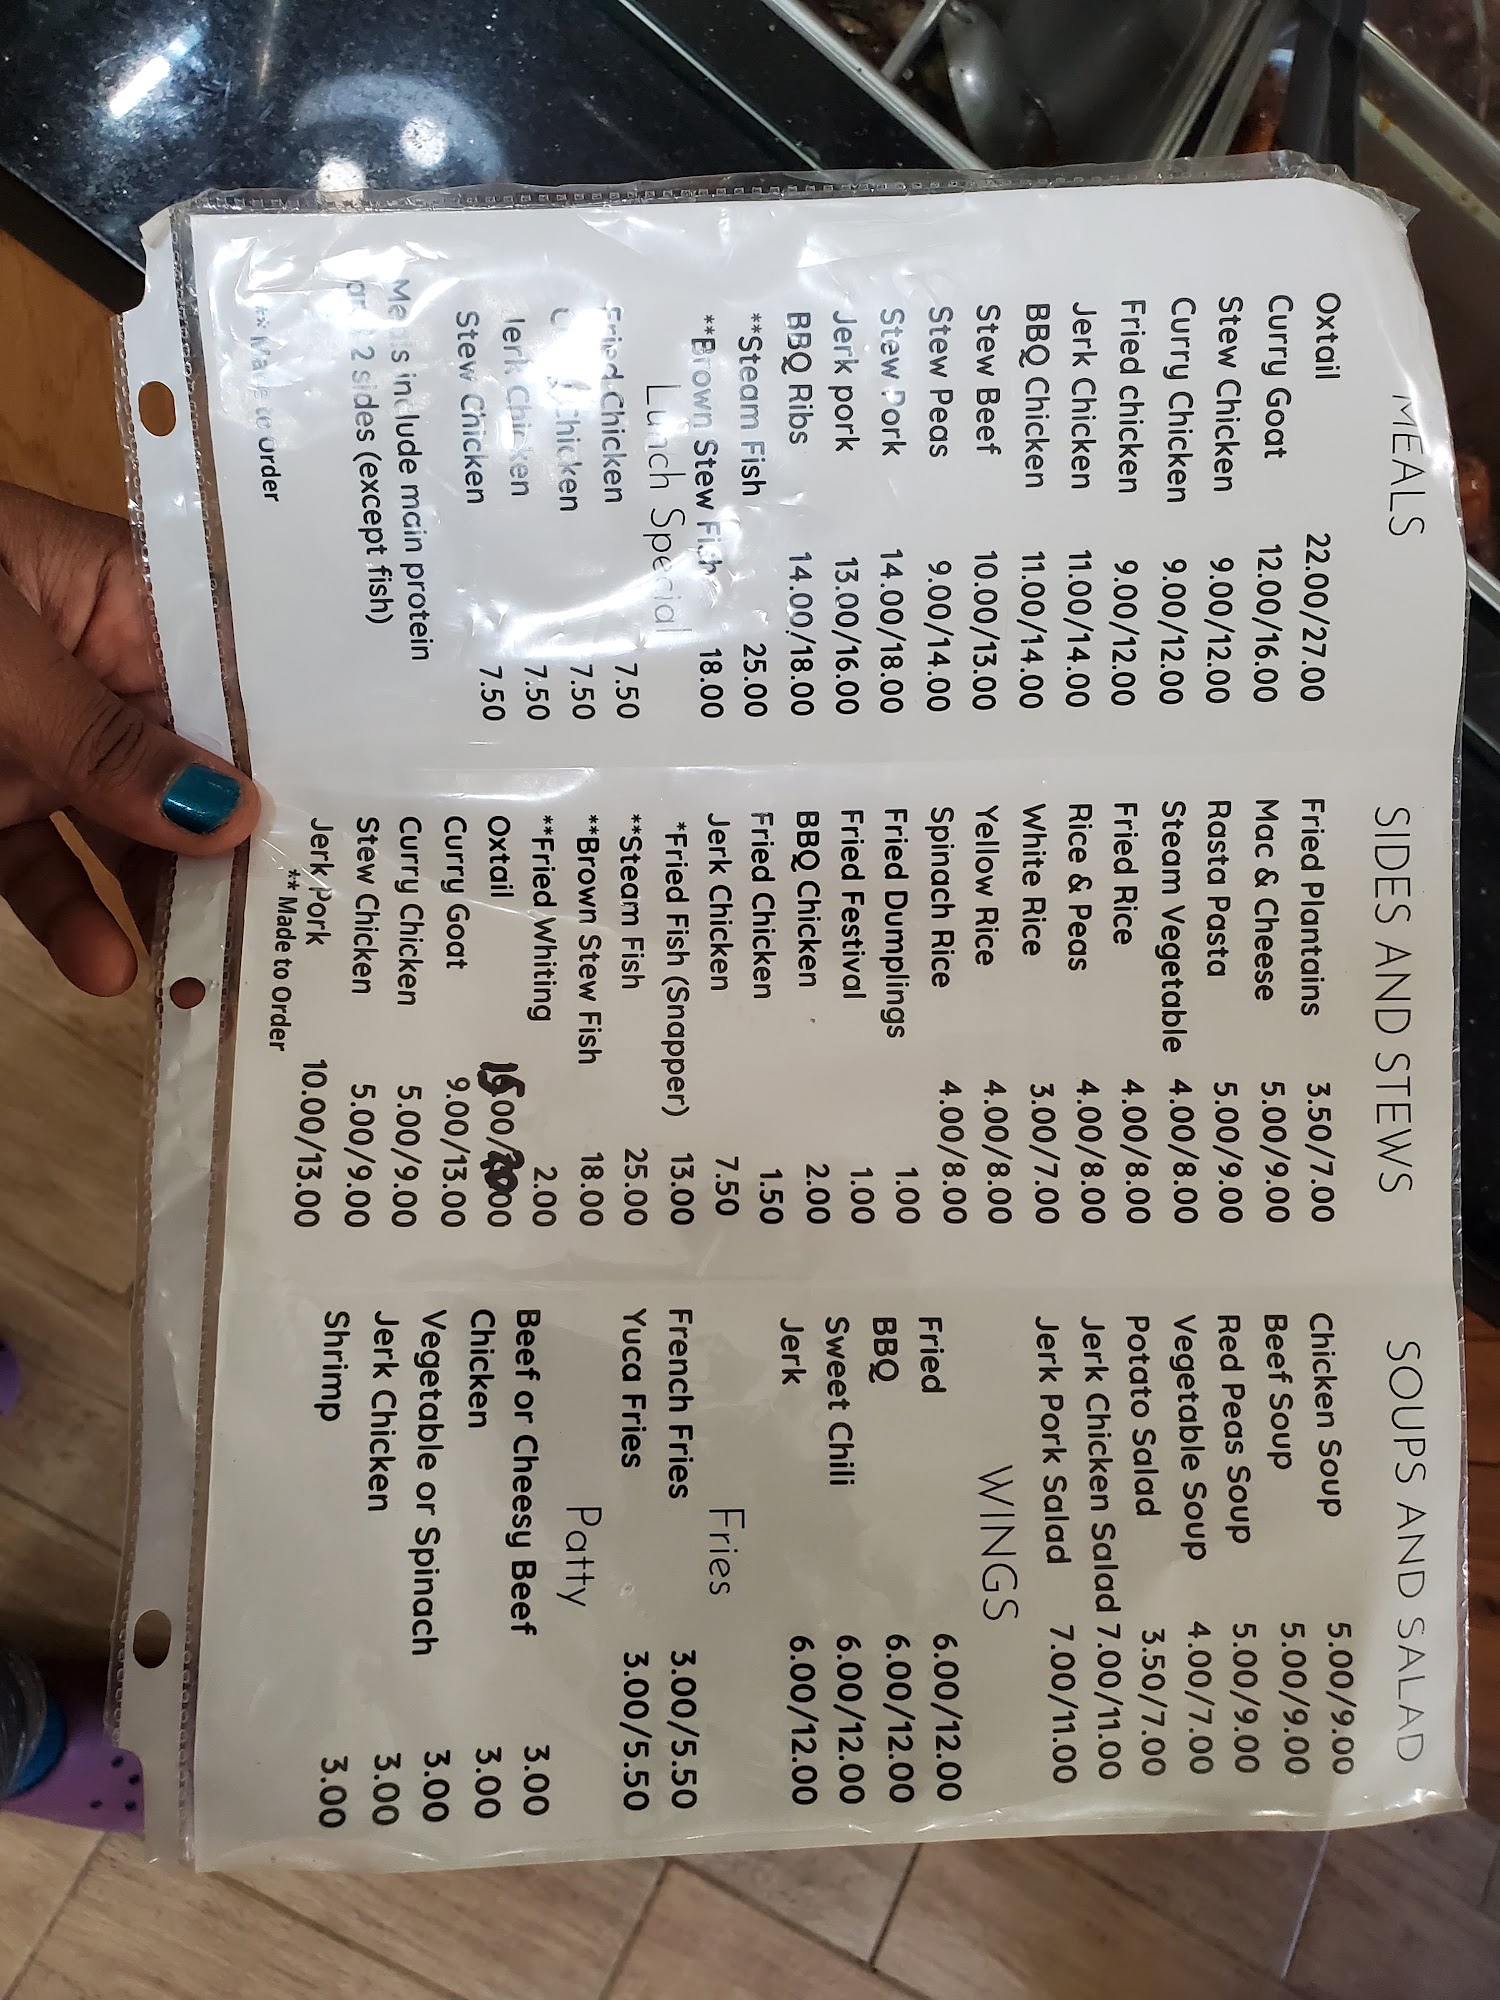 MEALS
Oxtail 22.00/27.00
Curry Goat 12.00/16.00
Stew Chicken 9.00/12.00
Curry Chicken 9.00/12.00
Fried chicken 9.00/12.00
Jerk Chicken 11.00/14.00
BBQ Chicken 11.00/14.00
Stew Beef 10.00/13.00
Stew Peas 9.00/14.00
Stew Pork 14.00/18.00
Jerk pork 13.00/16.00
BBQ Ribs 14.00/18.00
**Steam Fish 25.00
**Brown Stew Fish 18.00
Lunch Special
Fried Chicken 7.50
Chicken 7.50
Jerk Chicken 7.50
Stew Chicken 7.50
Meals include main protein
and 2 sides (except fish)
** Made to order
SIDES AND STEWS
Fried Plantains 3.50/7.00
Mac & Cheese 5.00/9.00
Rasta Pasta 5.00/9.00
Steam Vegetable 4.00/8.00
Fried Rice 4.00/8.00
Rice & Peas 4.00/8.00
White Rice 3.00/7.00
Yellow Rice 4.00/8.00
Spinach Rice 4.00/8.00
Fried Dumplings 1.00
Fried Festival 1.00
BBQ Chicken 2.00
Fried Chicken 1.50
Jerk Chicken 7.50
*Fried Fish (Snapper) 13.00
**Steam Fish 25.00
**Brown Stew Fish 18.00
**Fried Whiting 2.00
Oxtail 15.00/20.00
Curry Goat 9.00/13.00
Curry Chicken 5.00/9.00
Stew Chicken 5.00/9.00
Jerk Pork 10.00/13.00
** Made to Order
SOUPS AND SALAD
Chicken Soup 5.00/9.00
Beef Soup 5.00/9.00
Red Peas Soup 5.00/9.00
Vegetable Soup 4.00/7.00
Potato Salad 3.50/7.00
Jerk Chicken Salad 7.00/11.00
Jerk Pork Salad 7.00/11.00
WINGS
Fried 6.00/12.00
BBQ 6.00/12.00
Sweet Chili 6.00/12.00
Jerk 6.00/12.00
Fries
French Fries 3.00/5.50
Yuca Fries 3.00/5.50
Patty
Beef or Cheesy Beef 3.00
Chicken 3.00
Vegetable or Spinach 3.00
Jerk Chicken 3.00
Shrimp 3.00